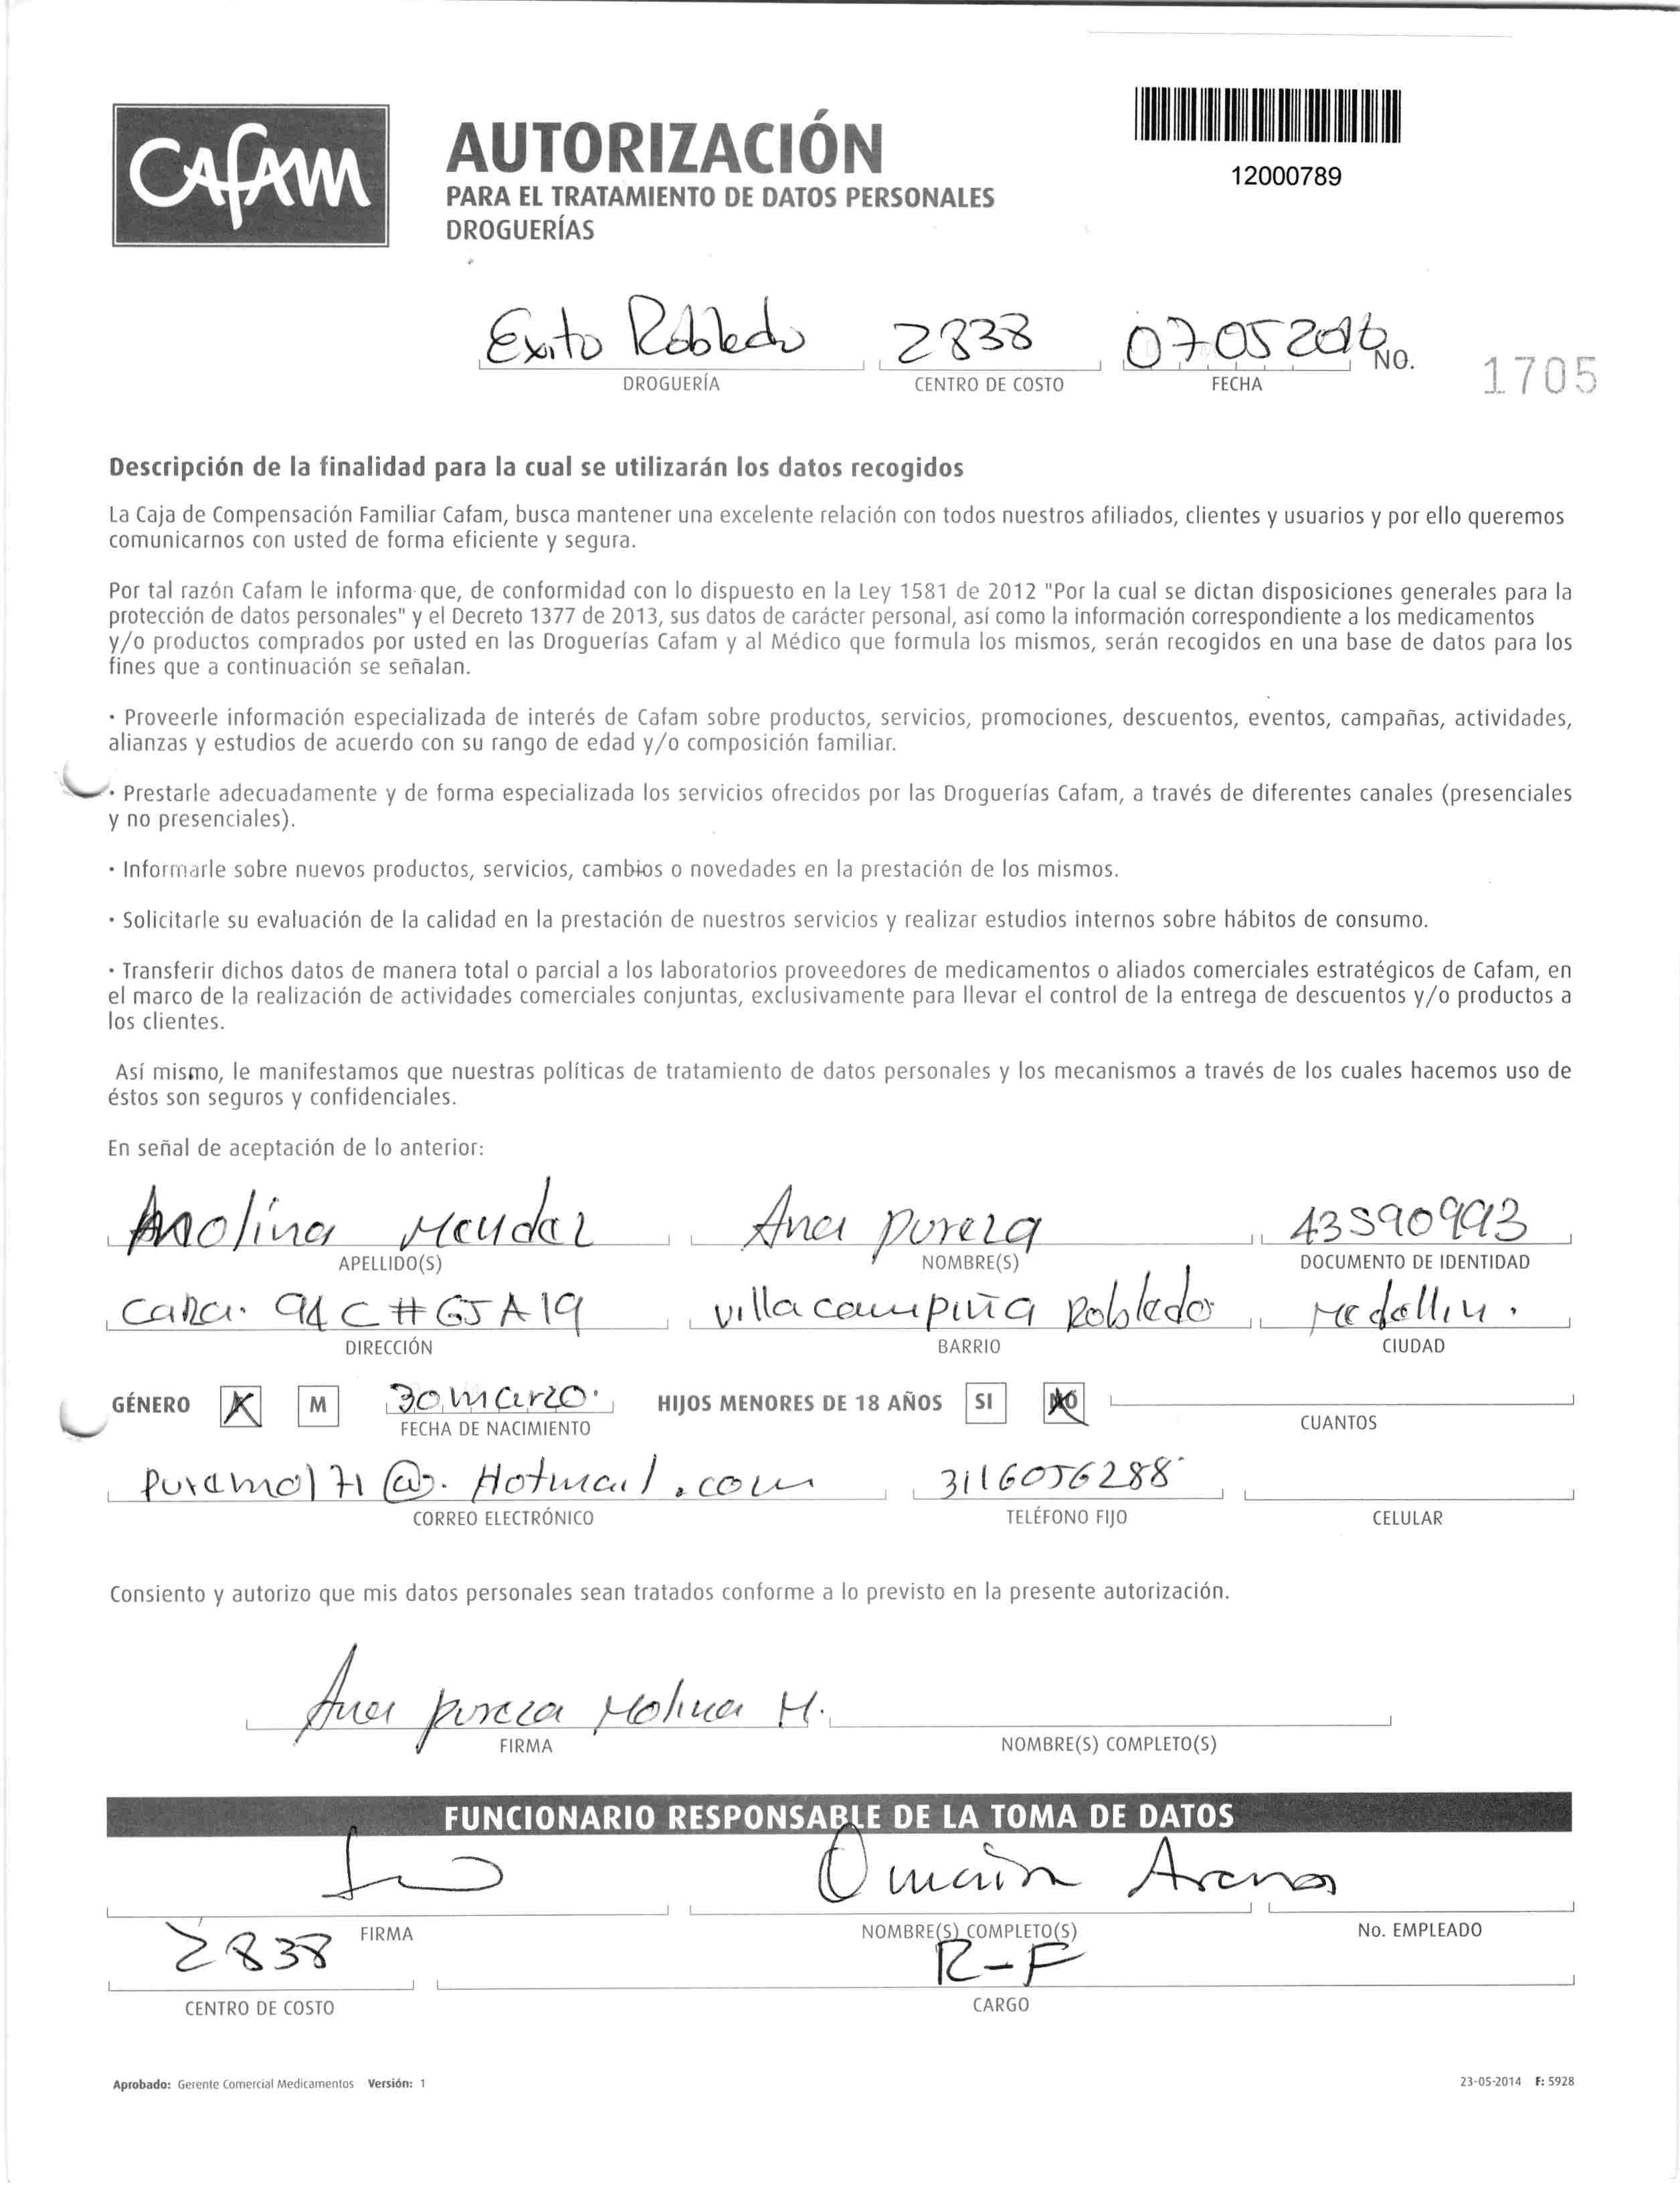 CAFAM
AUTORIZACIÓN
PARA EL TRATAMIENTO DE DATOS PERSONALES
DROGUERÍAS
12000789
Exito Robledo 2838 07052016
DROGUERÍA CENTRO DE COSTO FECHA NO. 1705
Descripción de la finalidad para la cual se utilizarán los datos recogidos
La Caja de Compensación Familiar Cafam, busca mantener una excelente relación con todos nuestros afiliados, clientes y usuarios y por ello queremos
comunicarnos con usted de forma eficiente y segura.
Por tal razón Cafam le informa que, de conformidad con lo dispuesto en la Ley 1581 de 2012 "Por la cual se dictan disposiciones generales para la
protección de datos personales" y el Decreto 1377 de 2013, sus datos de carácter personal, así como la información correspondiente a los medicamentos
y/o productos comprados por usted en las Droguerías Cafam y al Médico que formula los mismos, serán recogidos en una base de datos para los
fines que a continuación se señalan.
· Proveerle información especializada de interés de Cafam sobre productos, servicios, promociones, descuentos, eventos, campañas, actividades,
alianzas y estudios de acuerdo con su rango de edad y/o composición familiar.
· Prestarle adecuadamente y de forma especializada los servicios ofrecidos por las Droguerías Cafam, a través de diferentes canales (presenciales
y no presenciales).
· Informarle sobre nuevos productos, servicios, cambios o novedades en la prestación de los mismos.
· Solicitarle su evaluación de la calidad en la prestación de nuestros servicios y realizar estudios internos sobre hábitos de consumo.
· Transferir dichos datos de manera total o parcial a los laboratorios proveedores de medicamentos o aliados comerciales estratégicos de Cafam, en
el marco de la realización de actividades comerciales conjuntas, exclusivamente para llevar el control de la entrega de descuentos y/o productos a
los clientes.
Así mismo, le manifestamos que nuestras políticas de tratamiento de datos personales y los mecanismos a través de los cuales hacemos uso de
éstos son seguros y confidenciales.
En señal de aceptación de lo anterior:
Molina Mendez Ana pureza 43590993
APELLIDO(S) NOMBRE(S) DOCUMENTO DE IDENTIDAD
94 C # 65 A 19 villa campiña Robledo Medellin.
DIRECCIÓN BARRIO CIUDAD
GÉNERO M 30 marzo. HIJOS MENORES DE 18 AÑOS SI NO
FECHA DE NACIMIENTO CUANTOS
puramol71@. Hotmail.com 3116056288
CORREO ELECTRÓNICO TELÉFONO FIJO CELULAR
Consiento y autorizo que mis datos personales sean tratados conforme a lo previsto en la presente autorización.
Ana pureza Molina M.
FIRMA NOMBRE(S) COMPLETO(S)
FUNCIONARIO RESPONSABLE DE LA TOMA DE DATOS
Omain
FIRMA NOMBRE(S) COMPLETO(S) No. EMPLEADO
2838 R-F
CENTRO DE COSTO CARGO
Aprobado: Gerente Comercial Medicamentos Versión: 1 23-05-2014 F: 5928